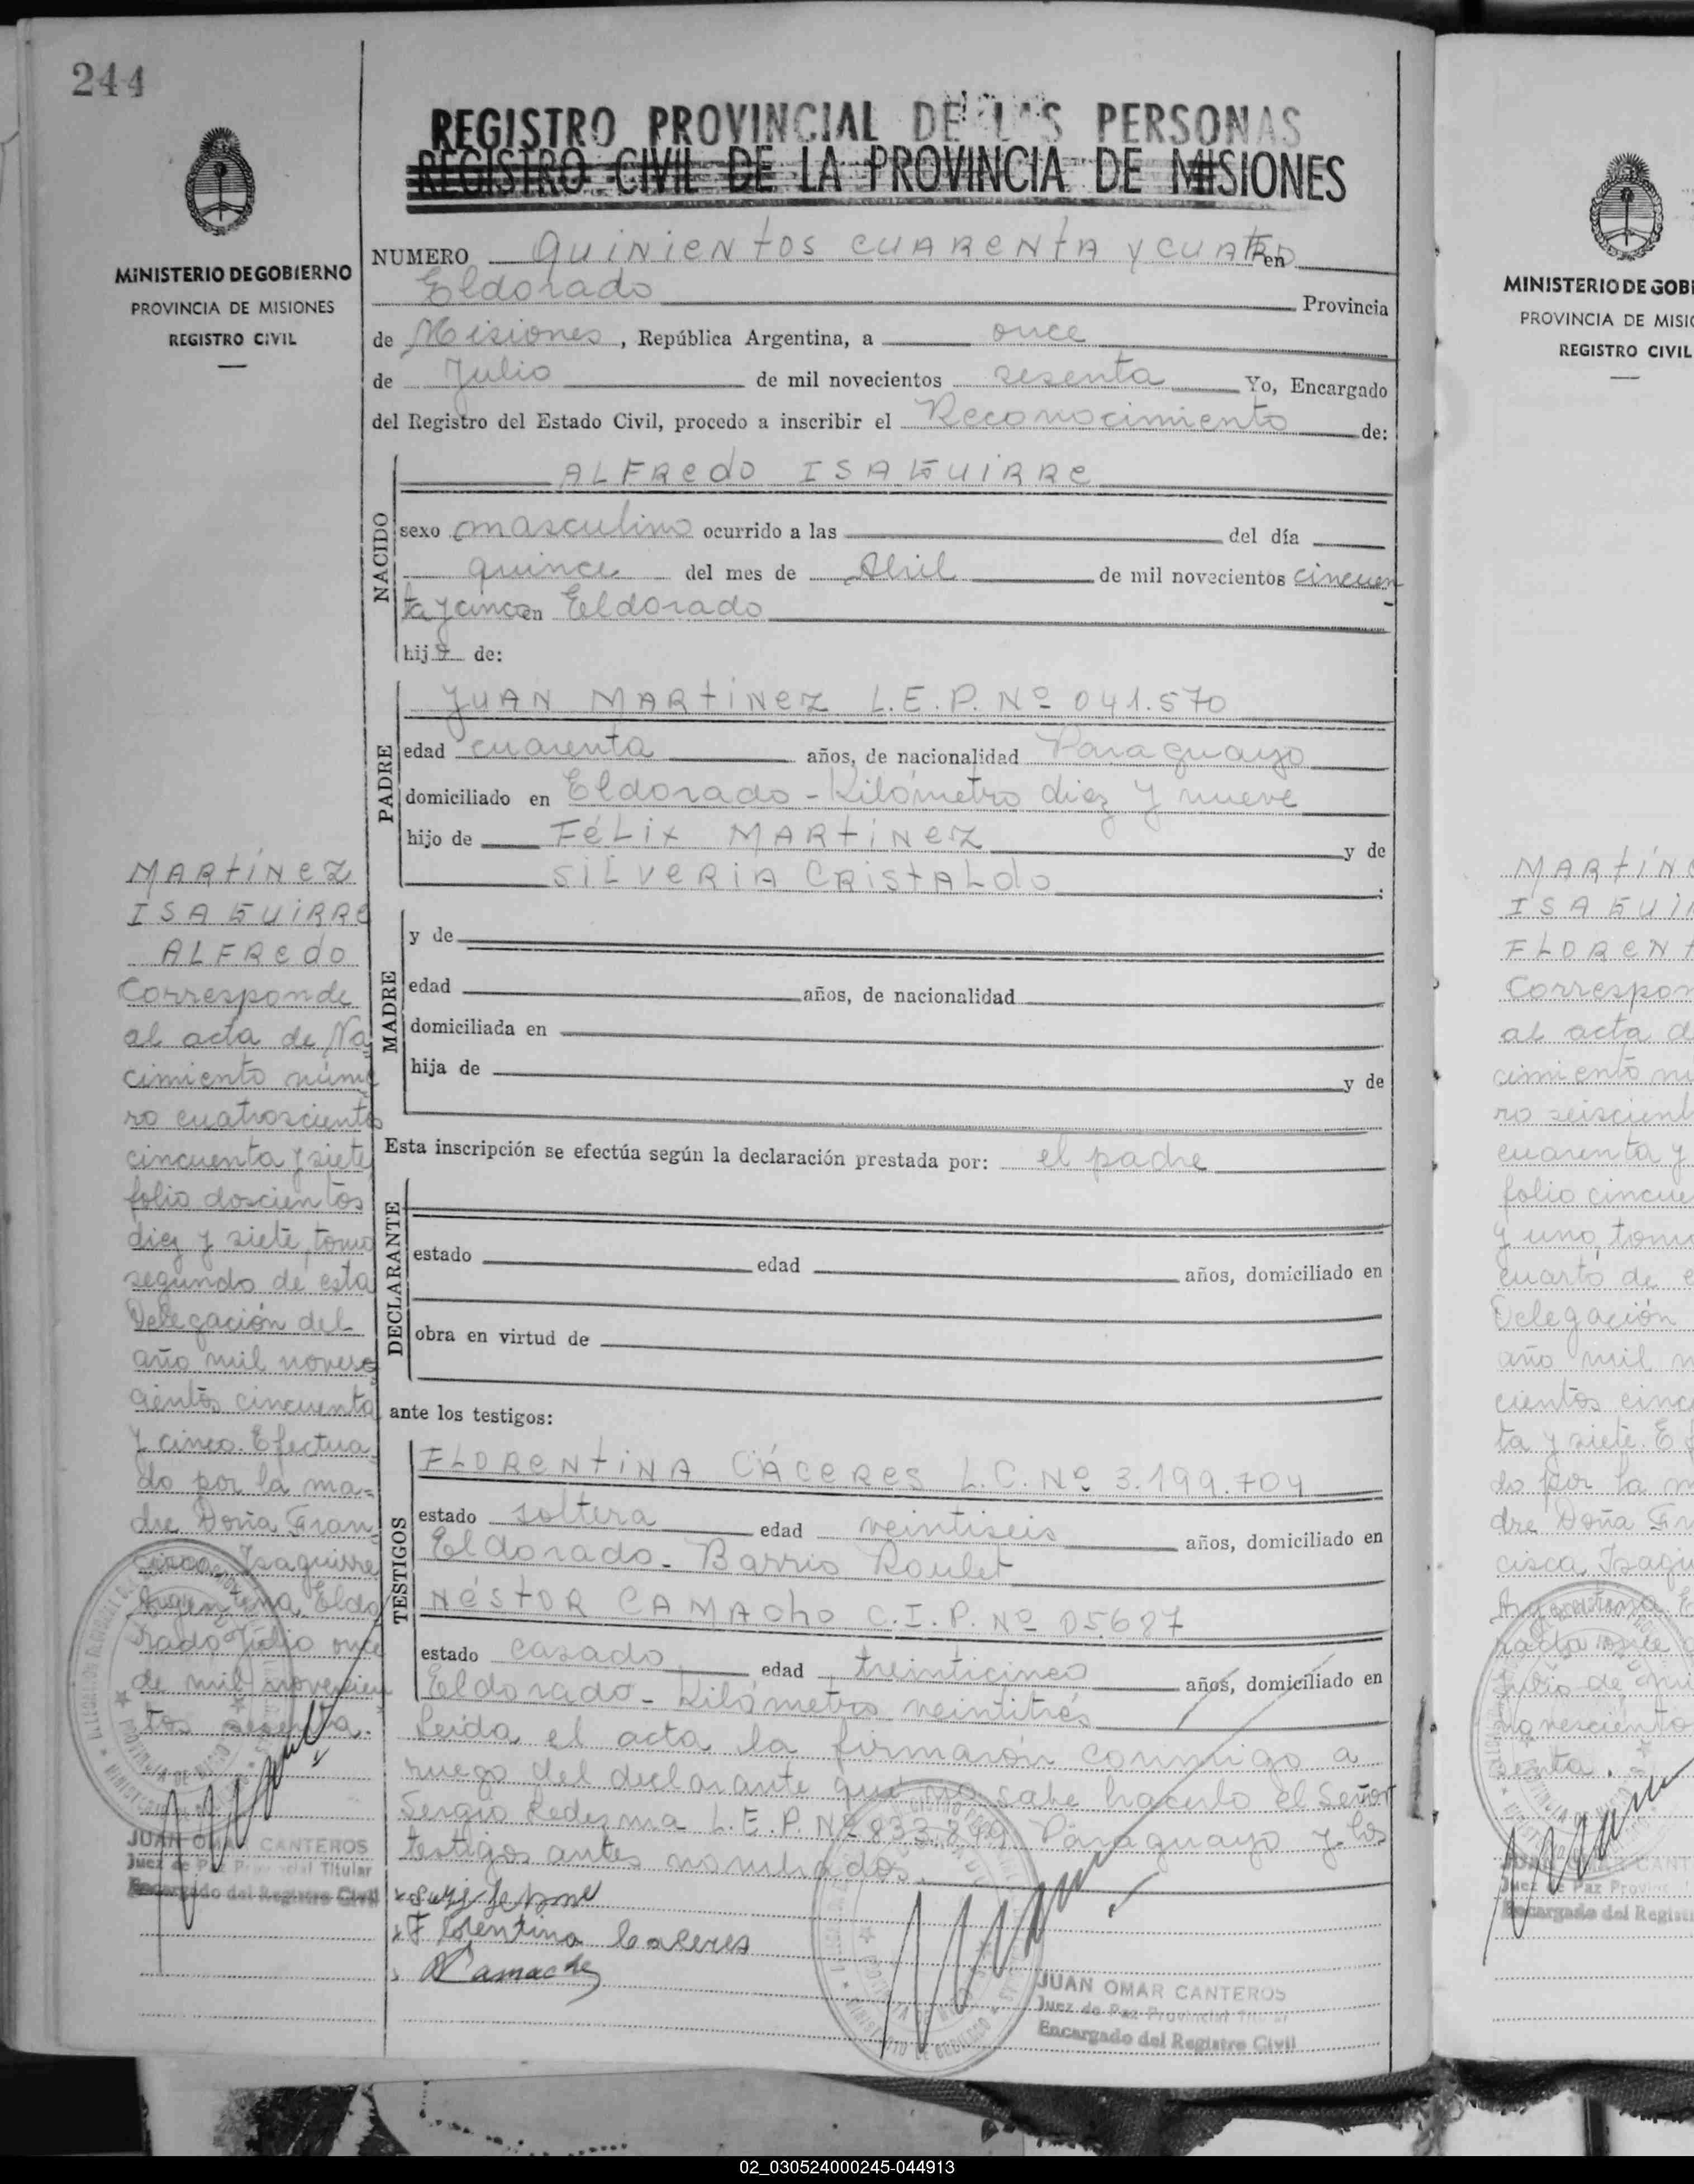 244
MINISTERIO DE GOBIERNO
PROVINCIA DE MISIONES
REGISTRO CIVIL
REGISTRO PROVINCIAL DE LAS PERSONAS
REGISTRO CIVIL DE LA PROVINCIA DE MISIONES
NUMERO QUINIENTOS CUARENTA Y CUATRO en
Eldorado Provincia
de Misiones, República Argentina, a once
de Julio de mil novecientos sesenta Yo, Encargado
del Registro del Estado Civil, procedo a inscribir el Reconocimiento de:
NACIDO
ALFREDO ISAGUIRRE
sexo masculino ocurrido a las del día
quince del mes de Abril de mil novecientos cincuen
ta y cinco en Eldorado
hijo de:
PADRE
JUAN MARTINEZ L.E.P. Nº 041.570
edad cuarenta años, de nacionalidad Paraguayo
domiciliado en Eldorado - Kilómetro diez y nueve
hijo de FÉLIX MARTÍNEZ y de
SILVERIA CRISTALDO
MADRE
y de
edad años, de nacionalidad
domiciliada en
hija de y de
Esta inscripción se efectúa según la declaración prestada por: el padre
DECLARANTE
estado edad años, domiciliado en
obra en virtud de
ante los testigos:
TESTIGOS
FLORENTINA CÁCERES L.C. Nº 3.199.704
estado soltera edad veintiseis años, domiciliado en
Eldorado - Barrio Roulet
NÉSTOR CAMACHO C.I.P. Nº 05687
estado casado edad treinticinco años, domiciliado en
Eldorado - Kilómetro veintitrés
Leida el acta la firmarón conmigo a
ruego del declarante que no sabe hacerlo el Señor
Sergio Ledezma L.E.P. Nº 833.849 Paraguayo y los
testigos antes nombrados.
Florentina Caceres
N Camacho
JUAN OMAR CANTEROS
Juez de Paz Provincial Titular
Encargado del Registro Civil
MARTÍNEZ
ISAGUIRRE
ALFREDO
Corresponde
al acta de Na
cimiento núme
ro cuatroscientos
cincuenta y siete
folio doscientos
diez y siete, tomo
segundo de esta
Delegación del
año mil noves
cientos cincuenta
y cinco. Efectua
do por la ma=
dre Doña Fran
cisca Isaguirre
Argentina. Eldo
rado Julio once
de mil novecien
tos sesenta.
JUAN OMAR CANTEROS
Juez de Paz Provincial Titular
Encargado del Registro Civil
MINISTERIO DE GOBI
PROVINCIA DE MISIO
REGISTRO CIVIL
MARTÍN
ISAGUI
FLOREN
Correspon
al acta d
cimiento nú
ro seiscient
cuarenta y
folio cincue
y uno, tomo
cuarto de e
Delegación
año mil n
cientos cinc
ta y siete. E
do por la m
dre Doña Fr
cisca Isagui
Argentina. E
rado once d
Julio de mi
novesciento
senta.
Juez de Paz Provinc
Encargado del Registr
02_030524000245-044913